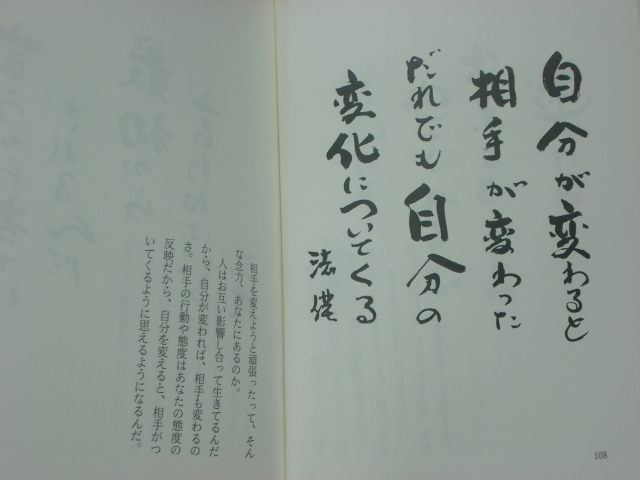 自分が変わると
相手が変わった
だれでも自分の
変化についてくる
相手を変えようと頑張ったって、そん
な念力、あなたにあるのか。
人はお互い影響し合って生きてるんだ
から、自分が変われば、相手も変わるの
さ。相手の行動や態度はあなたの態度の
反映だから、自分を変えると、相手がつ
いてくるように思えるようになるんだ。
108